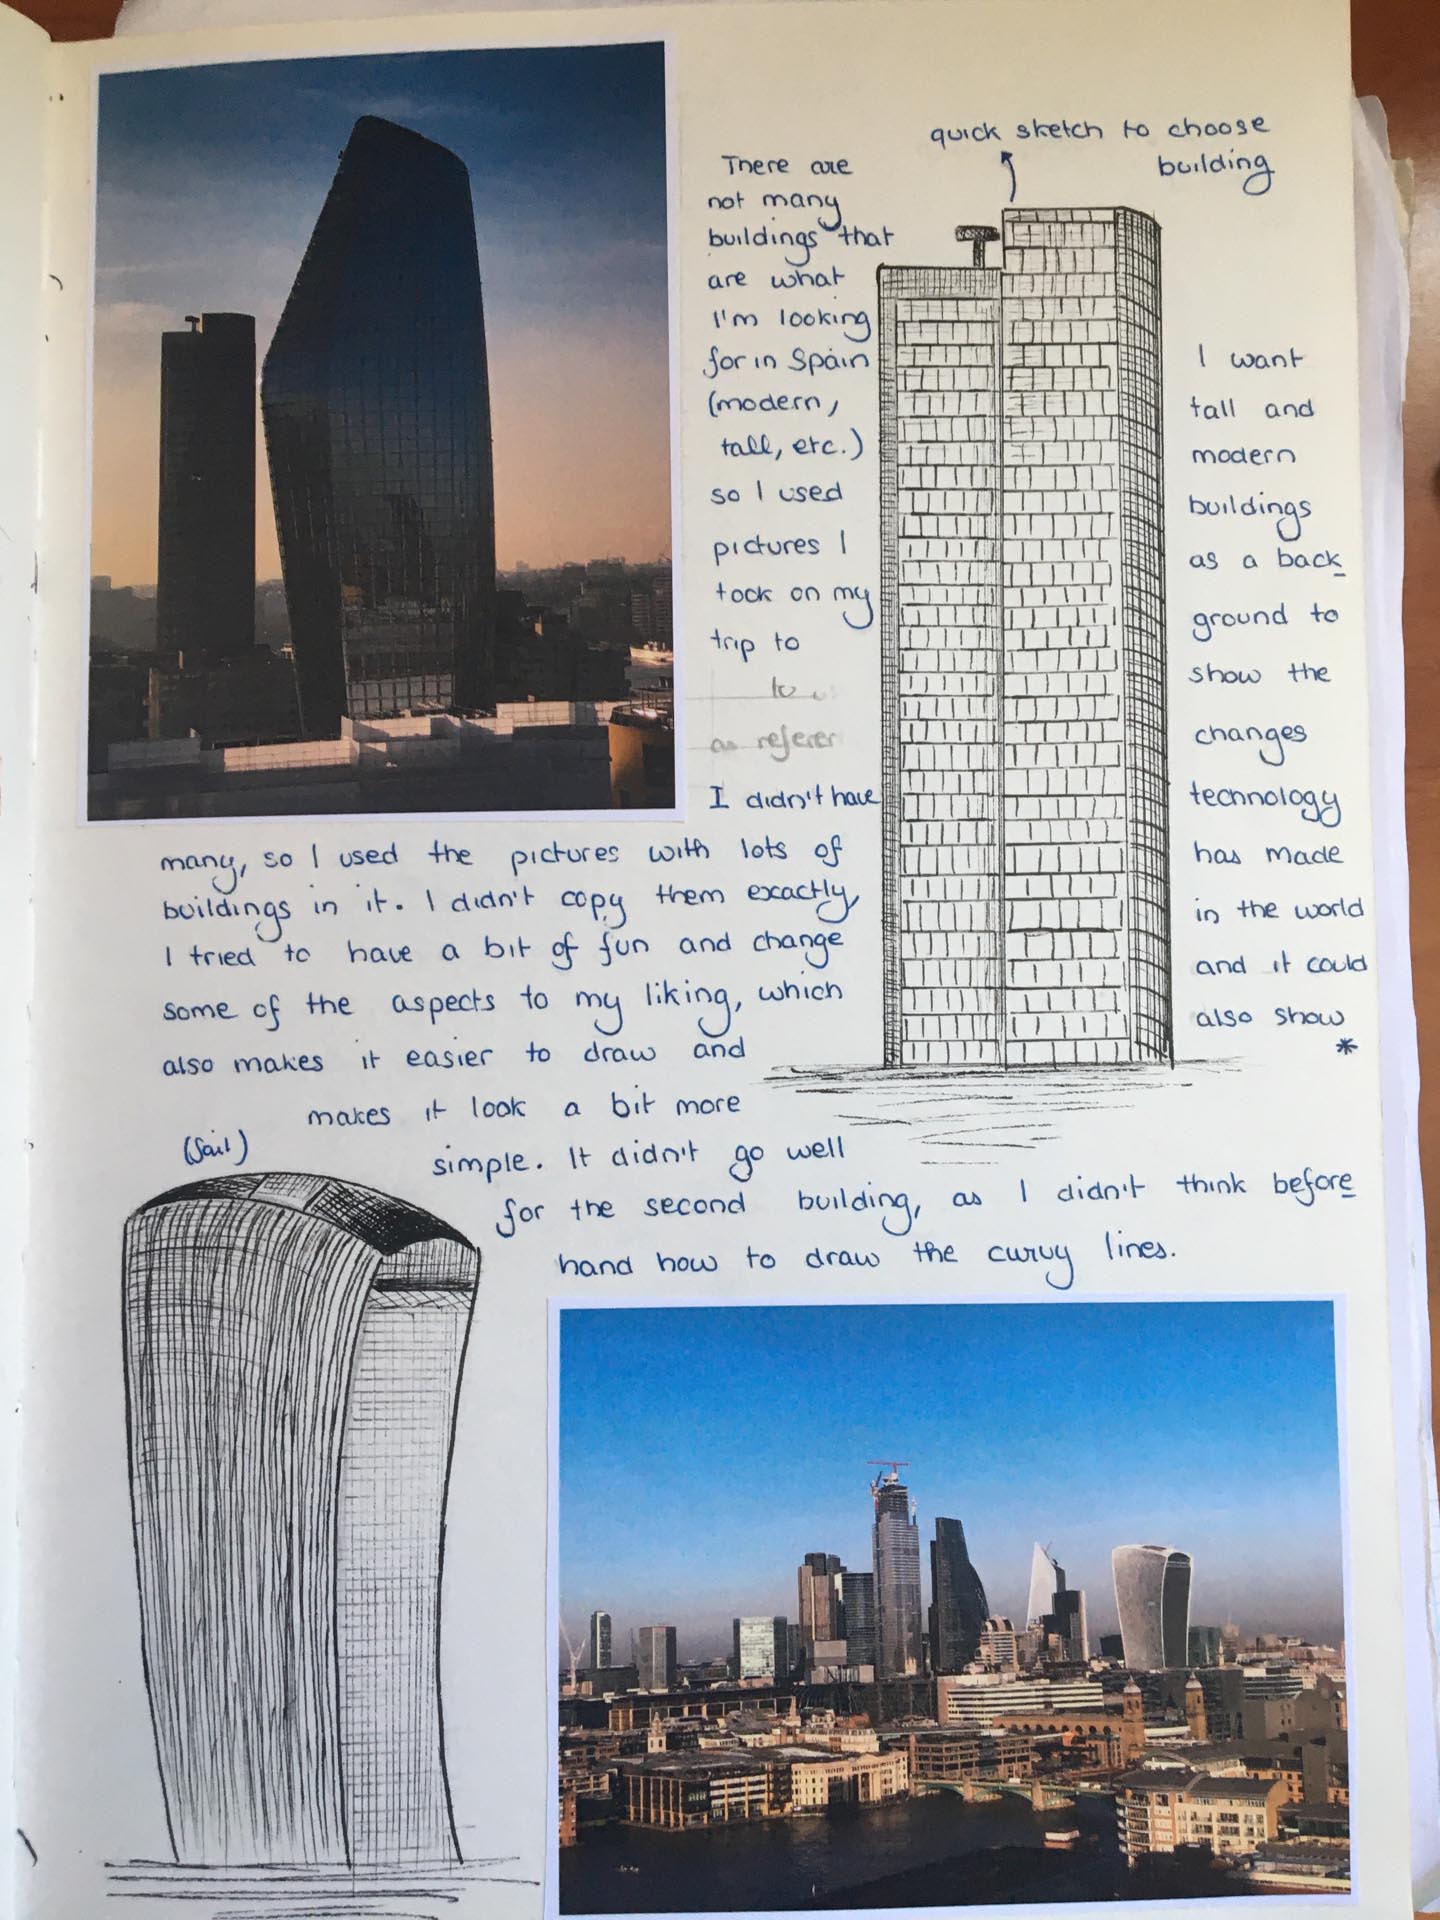 quick sketch to choose
building
There are
not many
buildings that
are what
I'm looking
for in Spain
(modern,
tall, etc.)
so I used
pictures I
took on my
trip to
to
as referen
I didn't have
many, so I used the pictures with lots of
buildings in it. I didn't copy them exactly,
I tried to have a bit of fun and change
some of the aspects to my liking, which
also makes it easier to draw and
makes it look a bit more
simple. It didn't go well
for the second building, as I didn't think before
hand how to draw the curvy lines.
I want
tall and
modern
buildings
as a back
ground to
show the
changes
technology
has made
in the world
and it could
also show
*
(Sail)